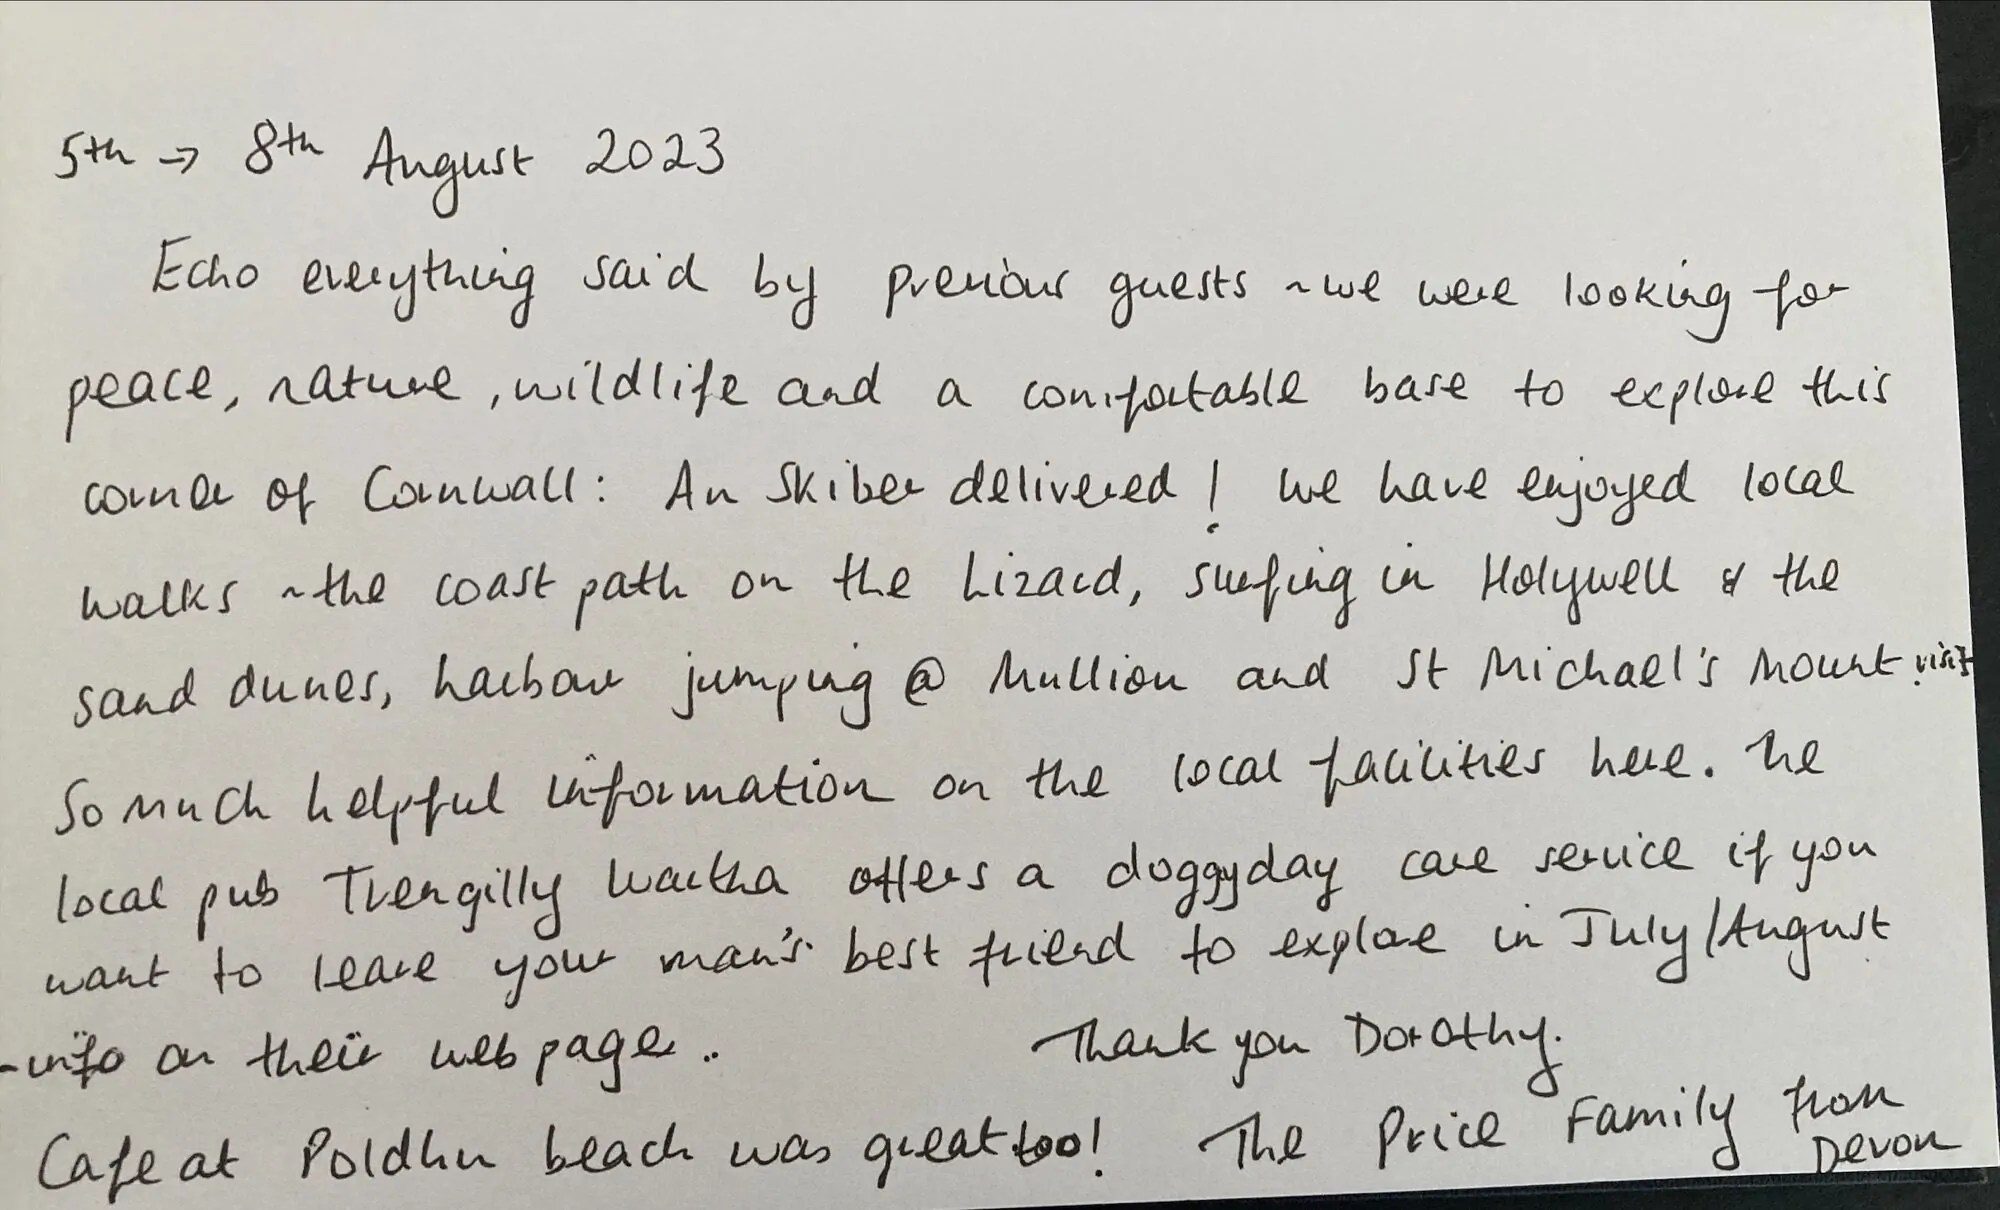 5th → 8th August 2023
Echo everything said by previous guests ~ we were looking for
peace, nature, wildlife and a comfortable base to explore this
corner of Cornwall: An Skiber delivered! We have enjoyed local
walks ~ the coast path on the Lizard, surfing in Holywell & the
sand dunes, harbour jumping @ Mullion and St Michael's Mount visit.
So much helpful information on the local facilities here. The
local pub Trengilly Wartha offers a doggyday care service if you
want to leave your man's best friend to explore in July/August
- info on their web page..
Thank you Dorothy.
Cafe at Poldhu beach was great too!
The Price Family from
Devon